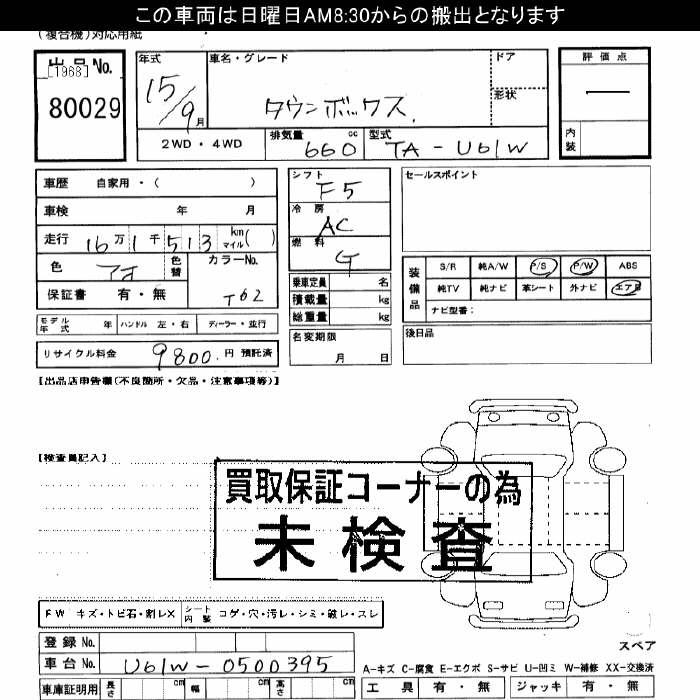 この車両は日曜日AM8:30からの搬出となります
(複合機)対応用紙
出品No.
[1968]
80029
年式
15/9月
車名・グレード
タウンボックス
ドア
形状
評価点
内装
2WD・4WD
排気量 660 cc
型式 TA-U61W
車歴 自家用・( )
車検 年 月
走行 16万1千513 km マイル( )
色 アオ 色替 カラーNo. T62
保証書 有・無
モデル年式 年 ハンドル 左・右 ディーラー・並行
リサイクル料金 9800.円 預託済
シフト F5
冷房 AC
燃料 G
乗車定員 名
積載量 kg
総重量 kg
名変期限
月 日
セールスポイント
装備品
S/R 純A/W P/S P/W ABS
純TV 純ナビ 革シート 外ナビ エアB
ナビ型番:
後日品
【出品店申告欄(不良箇所・欠品・注意事項等)】
【検査員記入】
買取保証コーナーの為
未検査
FW キズ・トビ石・割レX シート内装 コゲ・穴・汚レ・シミ・破レ・スレ
登録No.
車台No. U61W-0500395
車庫証明用 長さ cm 幅 cm 高さ cm
スペア
A-キズ C-腐食 E-エクボ S-サビ U-凹ミ W-補修 XX-交換済
工具 有・無 ジャッキ 有・無